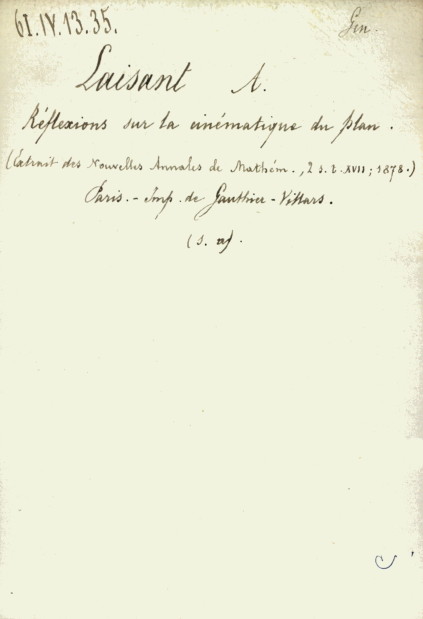 61.IV.13.35.
Gen.
Laisant A.
Réflexions sur la cinématique du plan.
(Extrait des Nouvelles Annales de Mathém., 2 s. t. XVII; 1878.)
Paris. - Imp. de Gauthier-Villars.
(s. a).